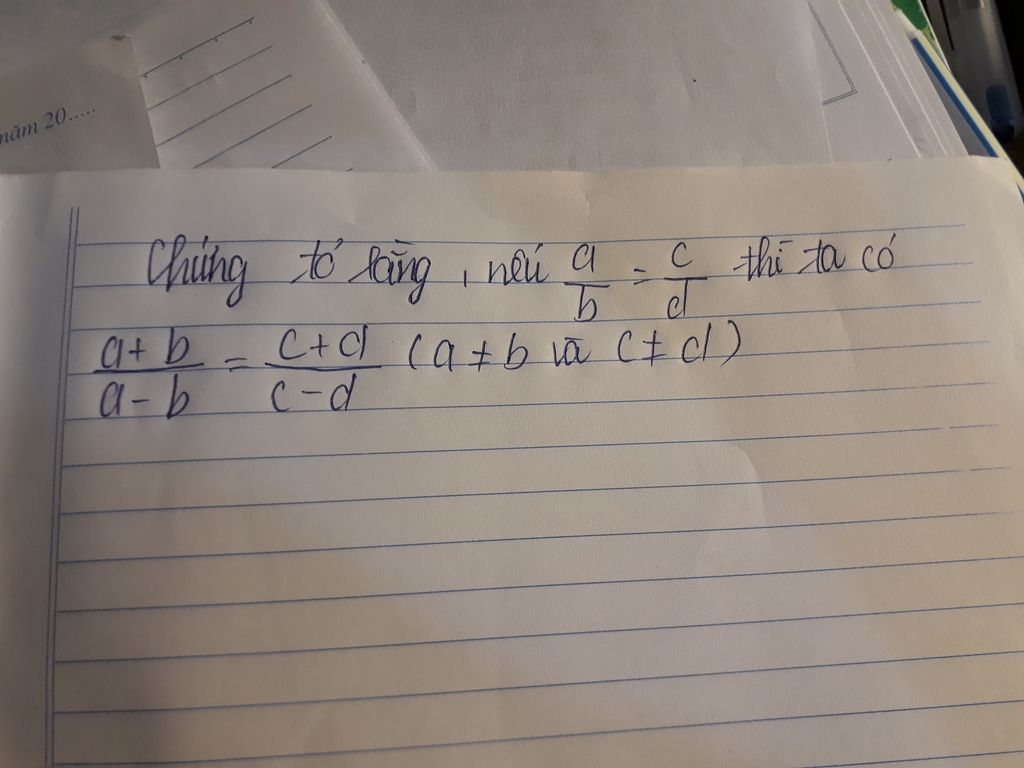 năm 20.....
Chứng tỏ rằng, nếu a/b = c/d thì ta có
(a+b)/(a-b) = (c+d)/(c-d) (a ≠ b và c ≠ d)